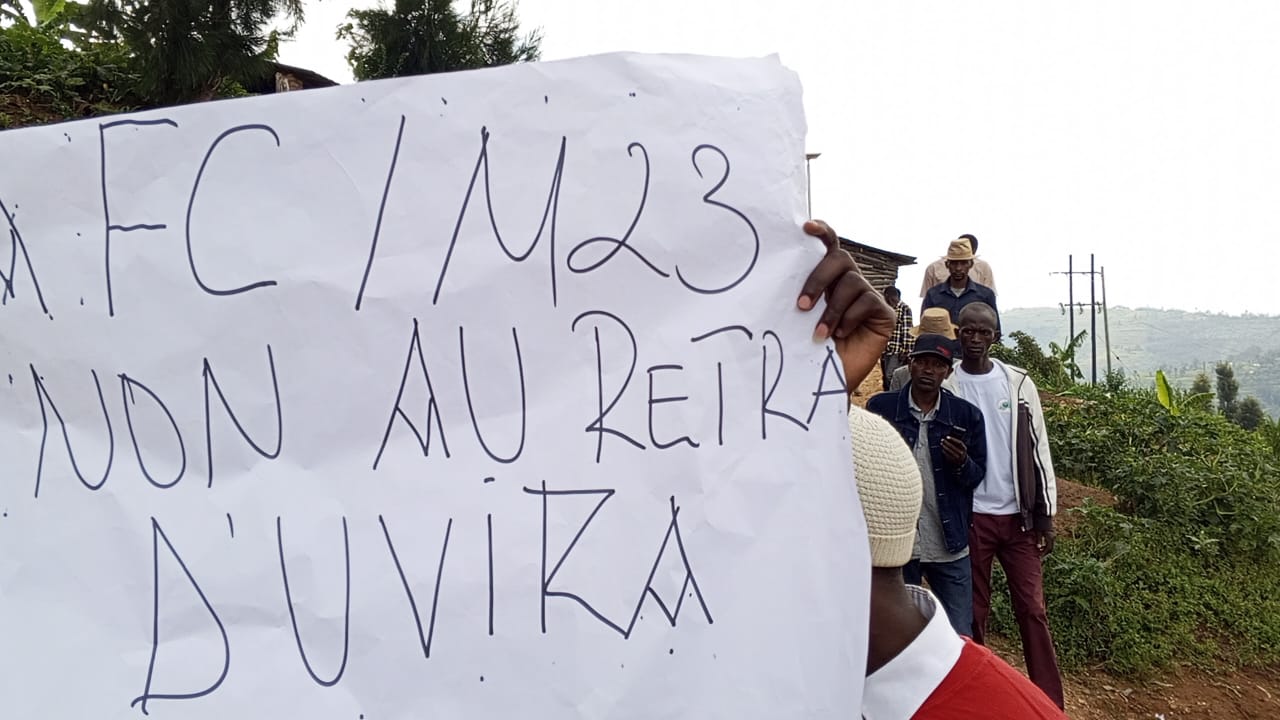 AFC/M23
NON AU RETRA
D'UVIRA